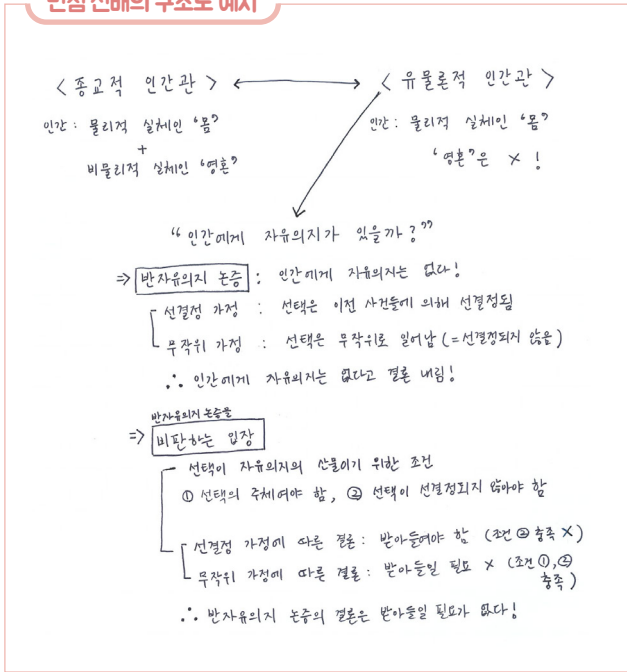 만점 선배의 구조도 예시
< 종교적 인간관 > ↔ < 유물론적 인간관 >
인간 : 물리적 실체인 '몸'
+
비물리적 실체인 '영혼'
인간 : 물리적 실체인 '몸'
'영혼'은 × !
"인간에게 자유의지가 있을까?"
⇒ 반자유의지 논증 : 인간에게 자유의지는 없다!
선결정 가정 : 선택은 이전 사건들에 의해 선결정됨
무작위 가정 : 선택은 무작위로 일어남 (=선결정되지 않음)
∴ 인간에게 자유의지는 없다고 결론 내림!
반자유의지 논증을
⇒ 비판하는 입장
선택이 자유의지의 산물이기 위한 조건
① 선택의 주체여야 함, ② 선택이 선결정되지 않아야 함
선결정 가정에 따른 결론 : 받아들여야 함 (조건 ② 충족 X)
무작위 가정에 따른 결론 : 받아들일 필요 × (조건 ①, ②
충족)
∴ 반자유의지 논증의 결론은 받아들일 필요가 없다!